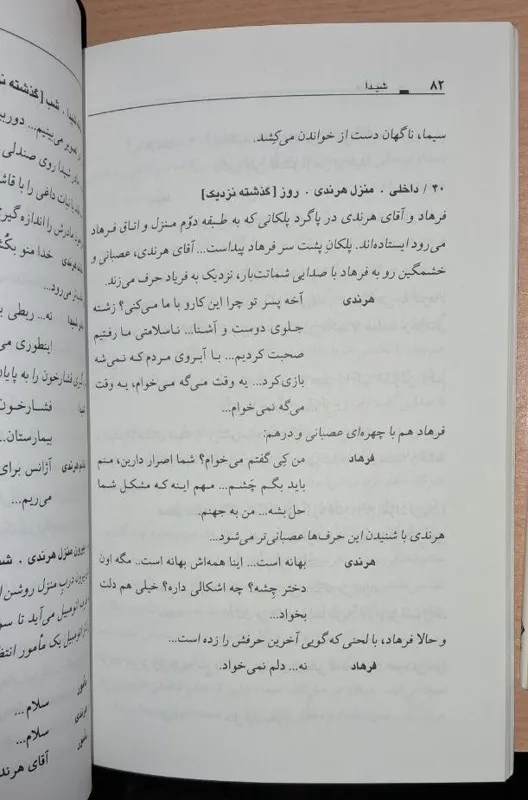 ۸۲ ــ شیدا
سیما، ناگهان دست از خواندن می‌کِشد.
۴۰ / داخلی . منزل هرندی . روز [گذشته نزدیک]
فرهاد و آقای هرندی در پاگرد پلکانی که به طبقه دوّم منزل و اتاق فرهاد
می‌رود ایستاده‌اند. پلکانِ پشت سر فرهاد پیداست... آقای هرندی، عصبانی و
خشمگین رو به فرهاد با صدایی شماتت‌بار، نزدیک به فریاد حرف می‌زند.
هرندی آخه پسر تو چرا این کارو با ما می‌کنی؟ زشته
جلوی دوست و آشنا... ناسلامتی ما رفتیم
صحبت کردیم... با آبروی مردم که نمی‌شه
بازی کرد... یه وقت می‌گه می‌خوام، یه وقت
می‌گه نمی‌خوام...
فرهاد هم با چهره‌ای عصبانی و درهم:
فرهاد من کِی گفتم می‌خوام؟ شما اصرار دارین، منم
باید بگم چَشم... مهم اینه که مشکل شما
حل بشه... من به جهنم.
هرندی با شنیدن این حرف‌ها عصبانی‌تر می‌شود...
هرندی بهانه است... اینا همه‌اش بهانه است.. مگه اون
دختر چِشه؟ چه اشکالی داره؟ خیلی هم دلت
بخواد...
و حالا فرهاد، با لحنی که گویی آخرین حرفش را زده است...
فرهاد نه... دلم نمی‌خواد.
شب [گذشته
تصویر می‌بینیم... دوربین
شیدا روی صندلی
نبات داغی را با قاشق
مادرش را اندازه گیری
هرندی خدا منو بکُش
تر می‌رود...
نه... ربطی به
اینطوری می
گیری فشارخون را به پایان
فشارخون
بیمارستان...
هرندی آژانس برای
می‌ریم...
بیرون منزل هرندی . شب
دربِ منزل روشن
اتومبیل می‌آید تا سو
اتومبیل یک مأمور انتظ
مأمور سلام...
هرندی سلام...
مأمور آقای هرندی